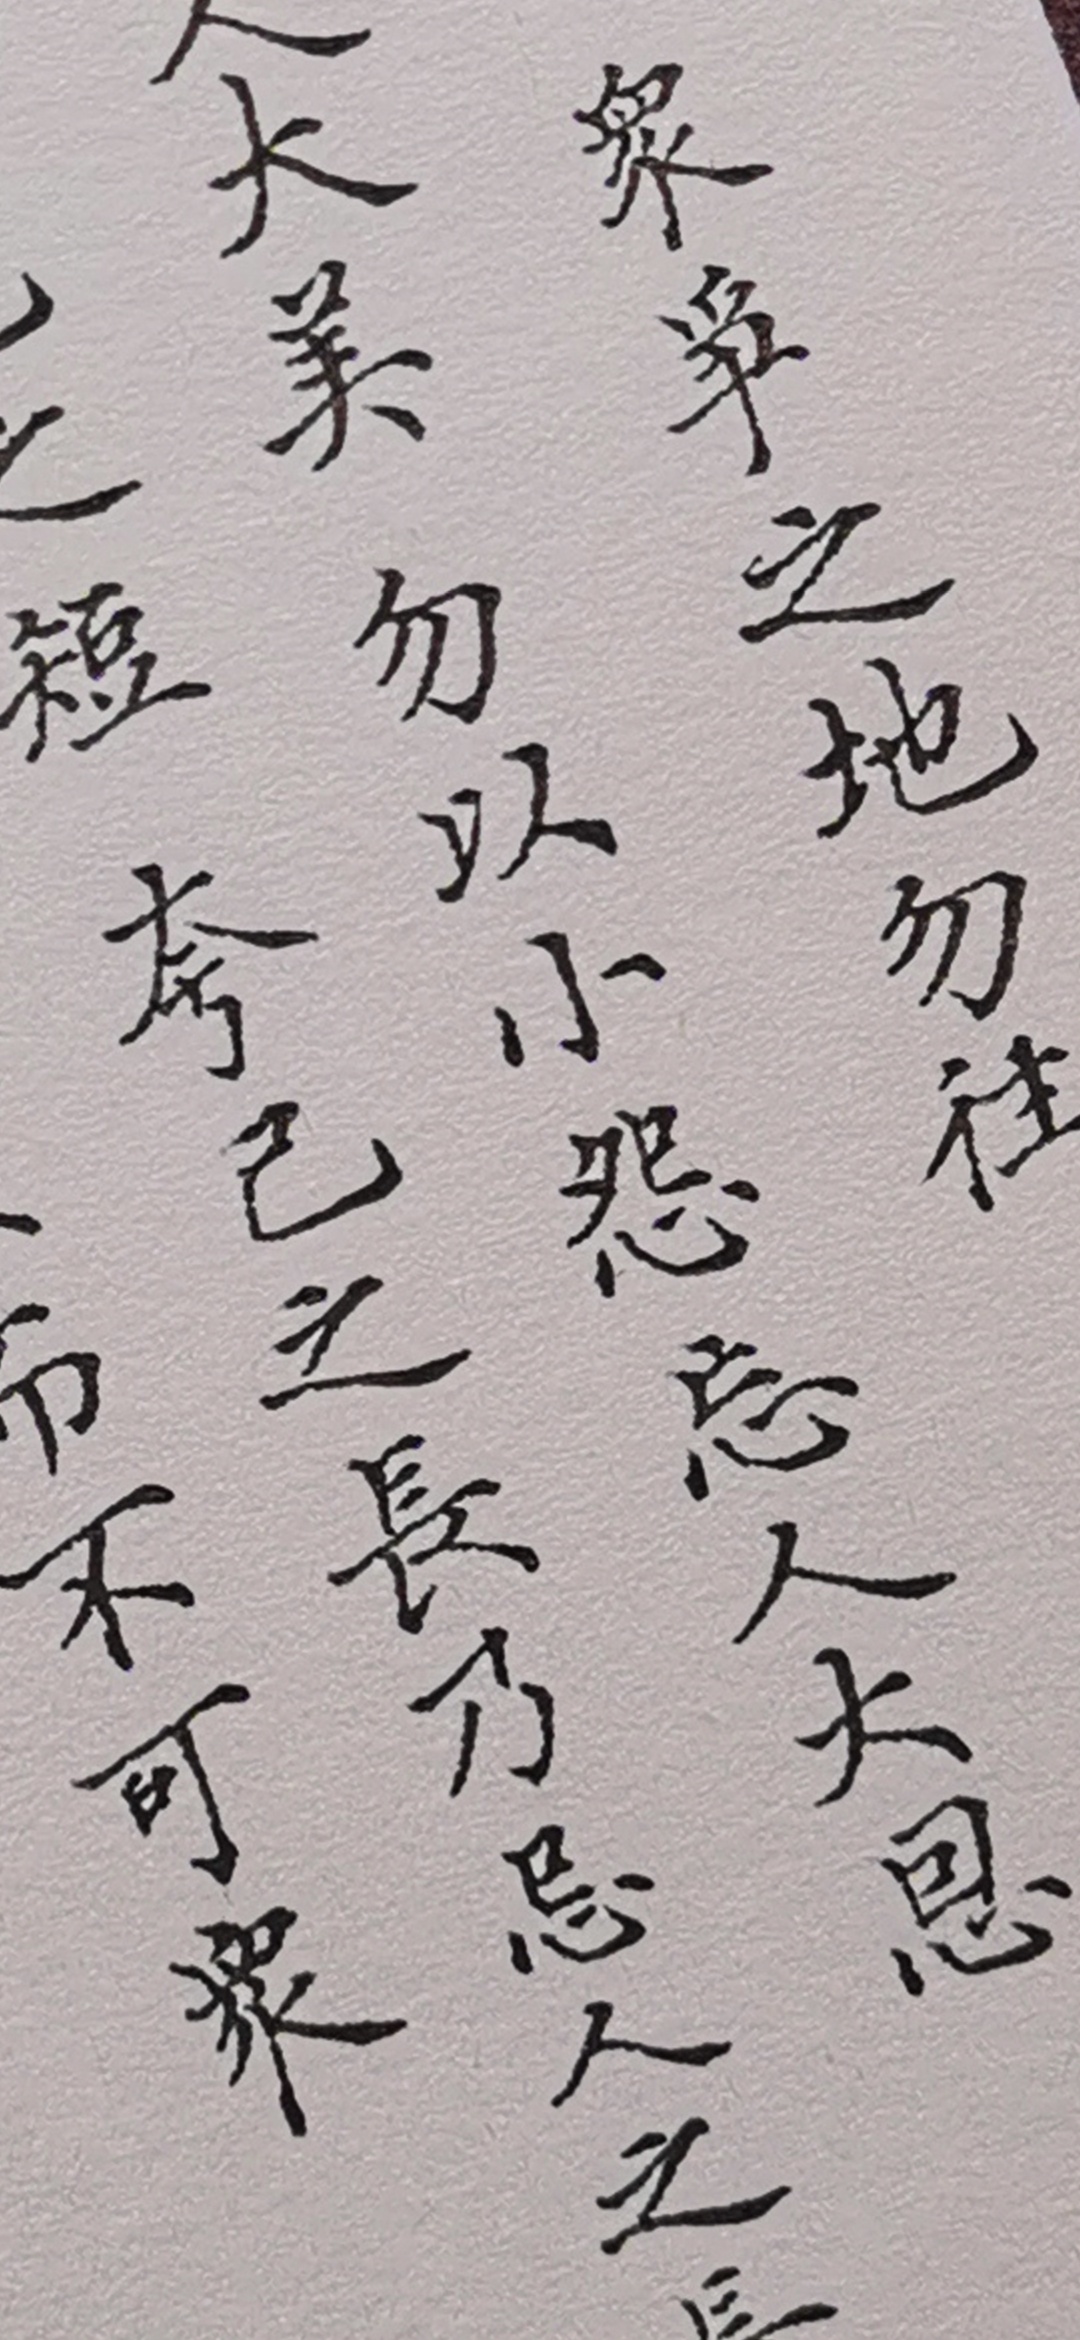 眾爭之地勿往
人大美勿以小怨忘人大恩
之短夸己之長乃忌人之長
而不可眾